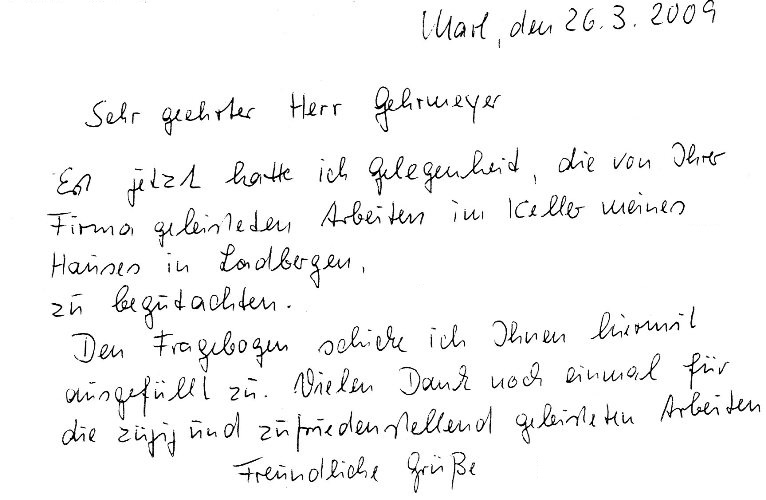 Marl, den 26.3.2009
Sehr geehrter Herr Gehrmeyer
Erst jetzt hatte ich Gelegenheit, die von Ihrer
Firma geleisteten Arbeiten im Keller meines
Hauses in Ladbergen,
zu begutachten.
Den Fragebogen schicke ich Ihnen hiermit
ausgefüllt zu. Vielen Dank noch einmal für
die zügig und zufriedenstellend geleisteten Arbeiten
Freundliche Grüße